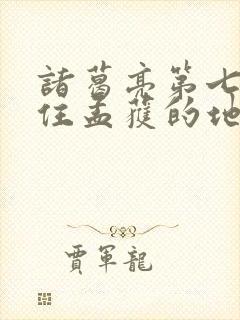 諸葛亮第七
住孟獲的地
賈軍龍